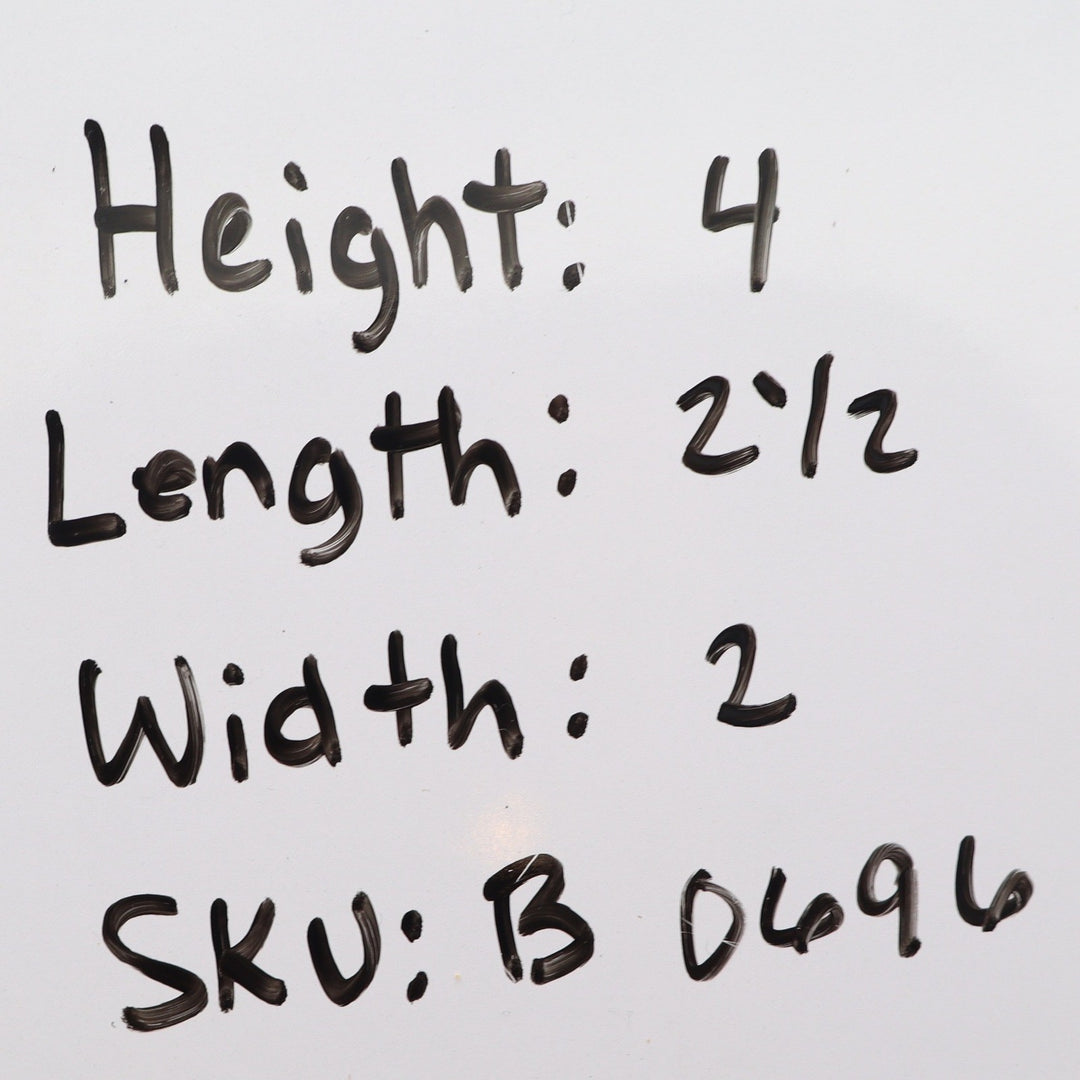 Height: 4
Length: 2 1/2
Width: 2
SKU: B 0696